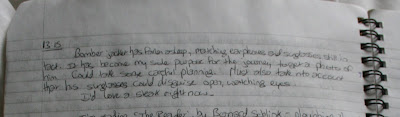 13.
Bomber jacket has fallen asleep, matching earphones and sunglasses still in
tact. It has become my sole purpose for the journey to get a photo of
him. Could take some careful planning. Must also take into account
that his sunglasses could disguise open, watching eyes.
I'd love a steak right now.
reading The Reader, by Bernard Schlink